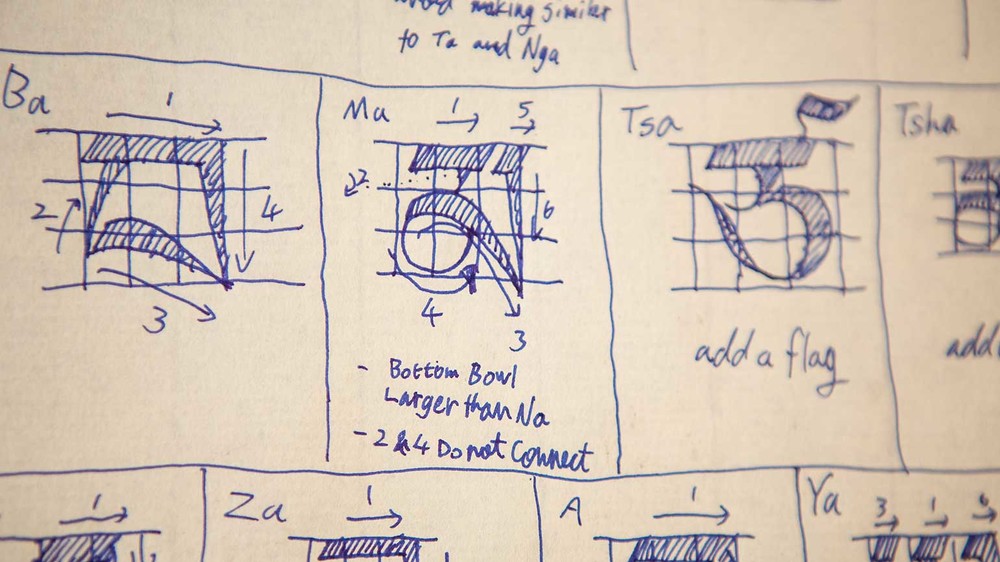 making similar
to Ta and Nga
Ba
1
2
3
4
Ma
1
5
2
6
4
3
- Bottom Bowl
Larger than Na
- 2 & 4 Do not Connect
Tsa
add a flag
Tsha
1
Za
1
A
1
Ya
3
1